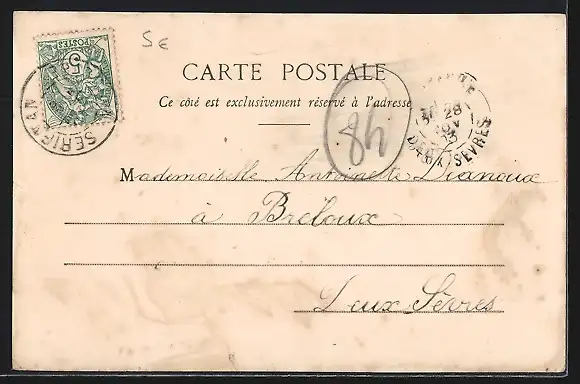 5€
POSTES
5
SERIGNAN
CARTE POSTALE
Ce côté est exclusivement réservé à l'adresse
84
28
DEUX SEVRES
Mademoiselle Antoinette Dianoux
à Breloux
Deux Sèvres